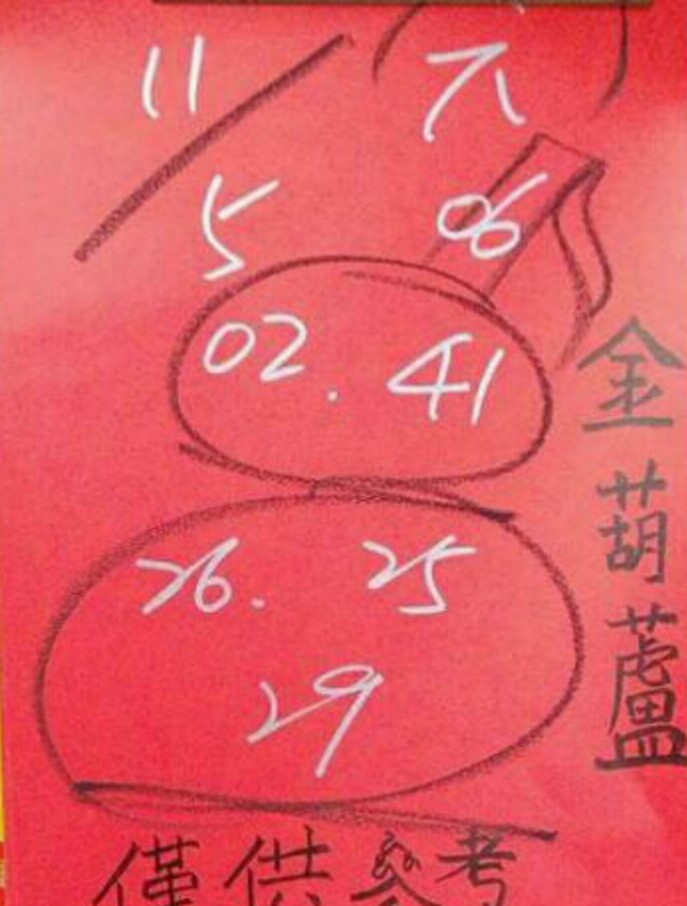 11
5
06
02. 41
26. 25
29
金葫蘆
僅供參考